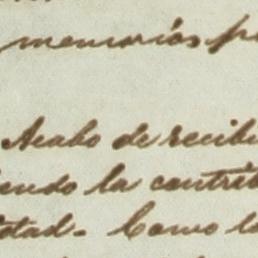 memorias p
Acabo de recibi
iendo la contrib
idad - Como lo